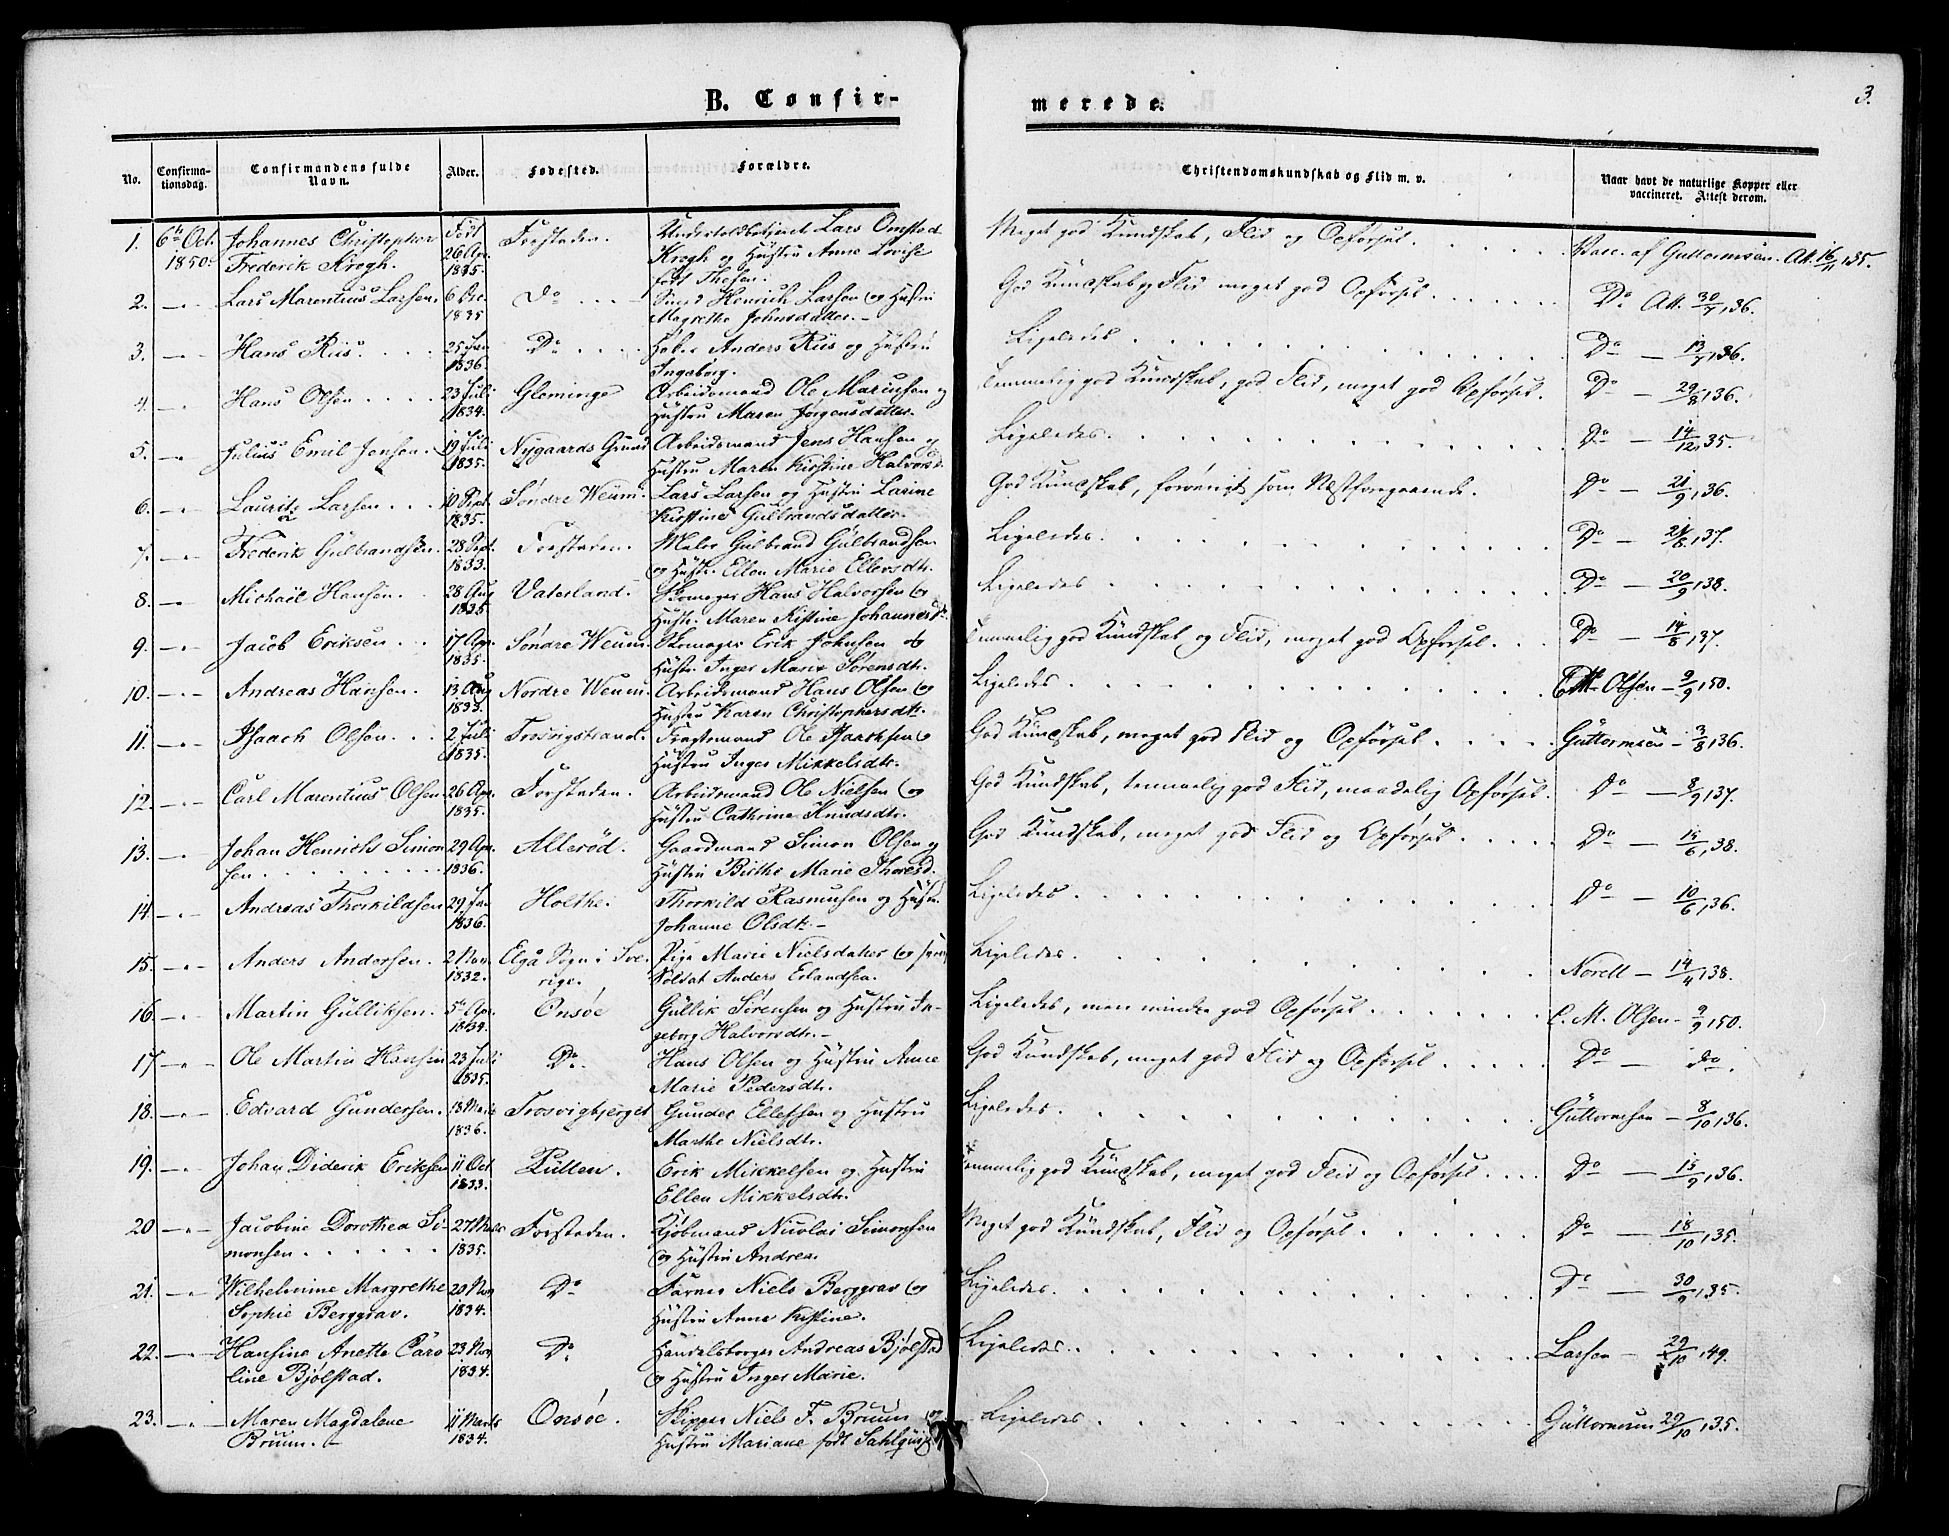 B. Confir-
merede.
3.
No. Confirma- Confirmandens fulde Alder. Fødested. Forældre. Christendomskundskab og Flid m. v. Naar havt de naturlige Kopper eller
tionsdag. Navn. vaccineret. Attest derom.
1. 6te Oct. Johannes Christopher Født Forstaden. Undertoldbetjent Lars Omstad Meget god Kundskab, Flid og Opførsel. Vacc. af Guttormsen. Att. 16/11 135.
1850. Frederik Krogh. 26 Apr. Krogh og Hustru Anne Lovise
1835. født Thosen.
2. —"— Lars Marentius Larsen. 6 Dec. Do Smed Henrich Larsen og Hustru God Kundskab og Flid meget god Opførsel. Do. Att. 30/7 136.
1835 Magrethe Johnsdatter. —
3. —"— Hans Riis. 25 Jan Do Høker Anders Riis og Hustru Ligeledes Do — 13/7 136.
1836. Ingeborg.
4. —"— Hans Olsen 23 Juli Gleminge Arbeidsmand Ole Mariusen og Temmelig god Kundskab, god Flid, meget god Opførsel. Do — 29/8 136.
1834. Hustru Maren Jørgensdatter.
5. —"— Julius Emil Jensen. 19 Juli Nygaards Grund Arbeidsmand Jens Hansen og Ligeledes. Do — 14/12 135.
1835. Hustru Maren Kirstine Halvorsd.
6. —"— Lauritz Larsen 10 Sept. Søndre Weum. Lars Larsen og Hustru Larine God Kundskab, forøvrigt som Næstforegaaende. Do — 21/9 136.
1835. Kirstine Gulbrandsdatter.
7. —"— Frederik Gulbrandsen. 28 Sept. Forstaden. Maler Gulbrand Gulbrandsen Ligeledes. Do — 21/8 137.
1833. og Hustr. Ellen Marie Ellevsdtr.
8. —"— Michael Hansen. 28 Aug Vaterland. Skomager Hans Halvorsen og Ligeledes Do — 20/9 138.
1835 Hustr. Maren Kistine Johannesdtr.
9. —"— Jacob Eriksen 17 Apr. Søndre Weum. Skomager Erik Johnsen og Temmelig god Kundskab og Flid, meget god Opførsel. Do — 14/8 137.
1835. Hustr. Inger Marie Sørensdtr.
10. —"— Andreas Hansen. 13 Aug Nordre Weum. Arbeidsmand Hans Olsen og Ligeledes C.M. Olsen — 9/9 150.
1833. Hustru Karen Christophersdtr.
11. —"— Isaach Olsen. 2 Juli Trosvigstrand. Fragtemand Ole Isaachsen og God Kundskab, meget god Flid og Opførsel Guttormsen — 3/8 136.
1835. Hustru Inger Mikkelsdtr.
12. —"— Carl Marentius Olsen. 26 Apr. Forstaden. Arbeidsmand Ole Nielsen og God Kundskab, temmelig god Flid, maadelig Opførsel. Do — 8/9 137.
1835. Hustru Cathrine Knudsdtr.
13. —"— Johan Henrich Simon 29 Apr. Allerød. Gaardmand Simon Olsen og God Kundskab, meget god Flid og Opførsel. Do — 15/6 138.
sen. 1836. Hustru Birthe Marie Thoresd.
14 —"— Andreas Thorkildsen 29 Jan Holthe. Thorkild Rasmusen og Hustr. Ligeledes Do — 10/6 136.
1836. Johanne Olsdtr. —
15. —"— Anders Andersen. 2 Nov. Elgå Sogn i Sve- Pige Marie Nielsdatter og Ligeledes. Norell — 14/4 138.
1832. rige. Soldat Anders Erlandsen.
16 —"— Martin Gulliksen. 5te Apr. Onsøe Gullik Sørensen og Hustru In- Ligeledes, men mindre god Opførsel C. M. Olsen — 9/9 150.
1834. geborg Halvorsdtr. —
17 —"— Ole Martin Hansen 23 Juli Do. Hans Olsen og Hustru Anne God Kundskab, meget god Flid og Opførsel Do — do.
1835. Marie Pedersdtr.
18. —"— Edvard Gundersen. 13 Marts Trosvigbjerget Gunder Ellefsen og Hustru Ligeledes. Guttormsen — 8/10 136.
1836. Marthe Nielsdtr.
19. —"— Johan Diderik Eriksen 11 Oct Putten. Erik Mikkelsen og Hustru Temmelig god Kundskab, meget god Flid og Opførsel. Do — 15/9 136.
1833. Ellen Mikkelsdtr.
20 —"— Jacobine Dorothea Si- 27 Marts Forstaden. Kjøbmand Nicolai Simonsen Meget god Kundskab, Flid og Opførsel Do — 18/10 135.
monsen 1835. og Hustru Andrea.
21. —"— Wilhelmine Margrethe 20 Nov Do Farver Niels Berggrav og Ligeledes. Do — 30/9 135.
Sophie Berggrav. 1834. Hustru Anne Kistine.
22. —"— Hansine Anette Caro 23 Nov Do. Handelsborger Andreas Bjølstad Ligeledes. Larsen — 29/10 149.
line Bjølstad. 1834. og Hustru Inger Marie.
23. —"— Maren Magdalene 11 Marts Onsøe. Skipper Niels F. Bruun og Ligeledes Guttormsen 29/10 135.
Bruun. — 1834. Hustru Mariane født Sahlquist